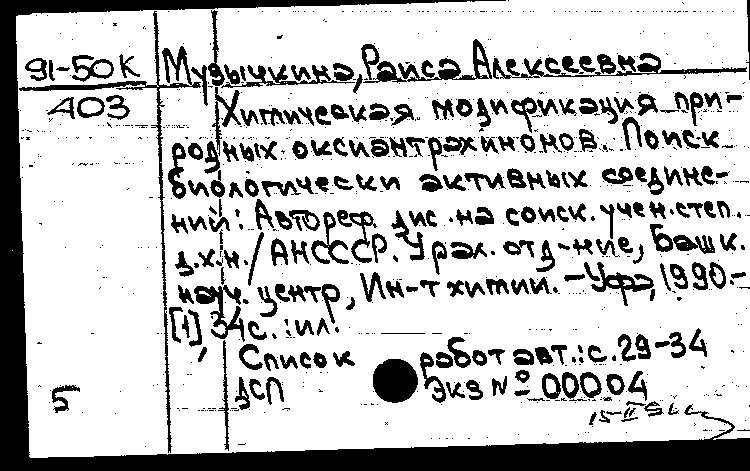 91-50К Музычкина, Раиса Алексеевна
403 Химическая модификация при-
родных оксиантрахинонов. Поиск
биологически активных соедине-
ний: Автореф. дис. на соиск. учен. степ.
д.х.н. / АН СССР. Урал. отд-ние, Башк.
науч. центр, Ин-т химии. - Уфа, 1990. -
[1], 34 с. : ил.
Список работ авт.: с. 29-34
5 ДСП Экз № 00004
15-II 91